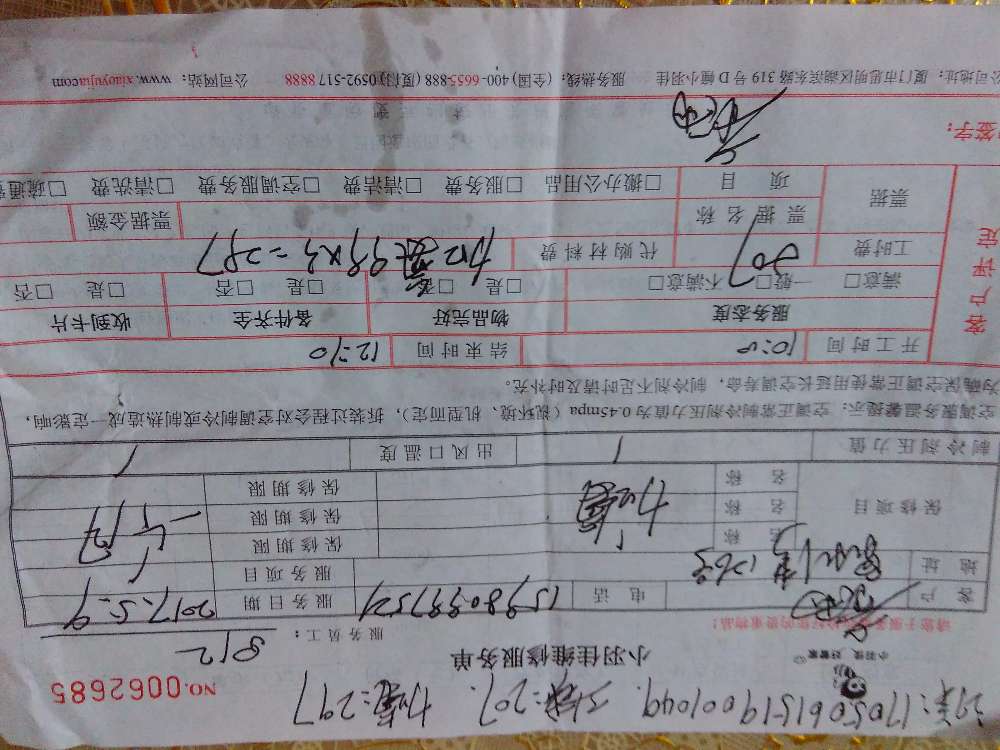 NO.0062685
小羽佳 好管家
小羽佳维修服务单
服务员工：812
客户 电话 服务日期 2017.5.9
地址 服务项目
保修项目 名称 保修期限
名称 加氟 保修期限 一个月
名称 保修期限
制冷剂压力值 / 出风口温度 /
空调服务温馨提示：空调正常制冷剂压力值为0.45mpa（视环境、机型而定），拆装过程会对空调制冷或制热造成一定影响，
为确保空调正常使用延长空调寿命，制冷剂不足时请及时补充。
开工时间 10:00 结束时间 12:10
客户评定
服务态度 物品完好 备件齐全 收到卡片
满意□ 一般□ 不满意□ □是 □否 □是 □否 □是 □否
工时费 207 代购材料费 99×3=297
票据 票据名称 票据金额
项目 □搬办公用品 □服务费 □清洁费 □空调服务费 □清洗费 □疏通
签字：
公司地址：厦门市思明区湖滨东路319号D幢小羽佳 服务热线：(全国)400-6655-888 (厦门)0592-517 8888 公司网站：www.xiaoyujia.com